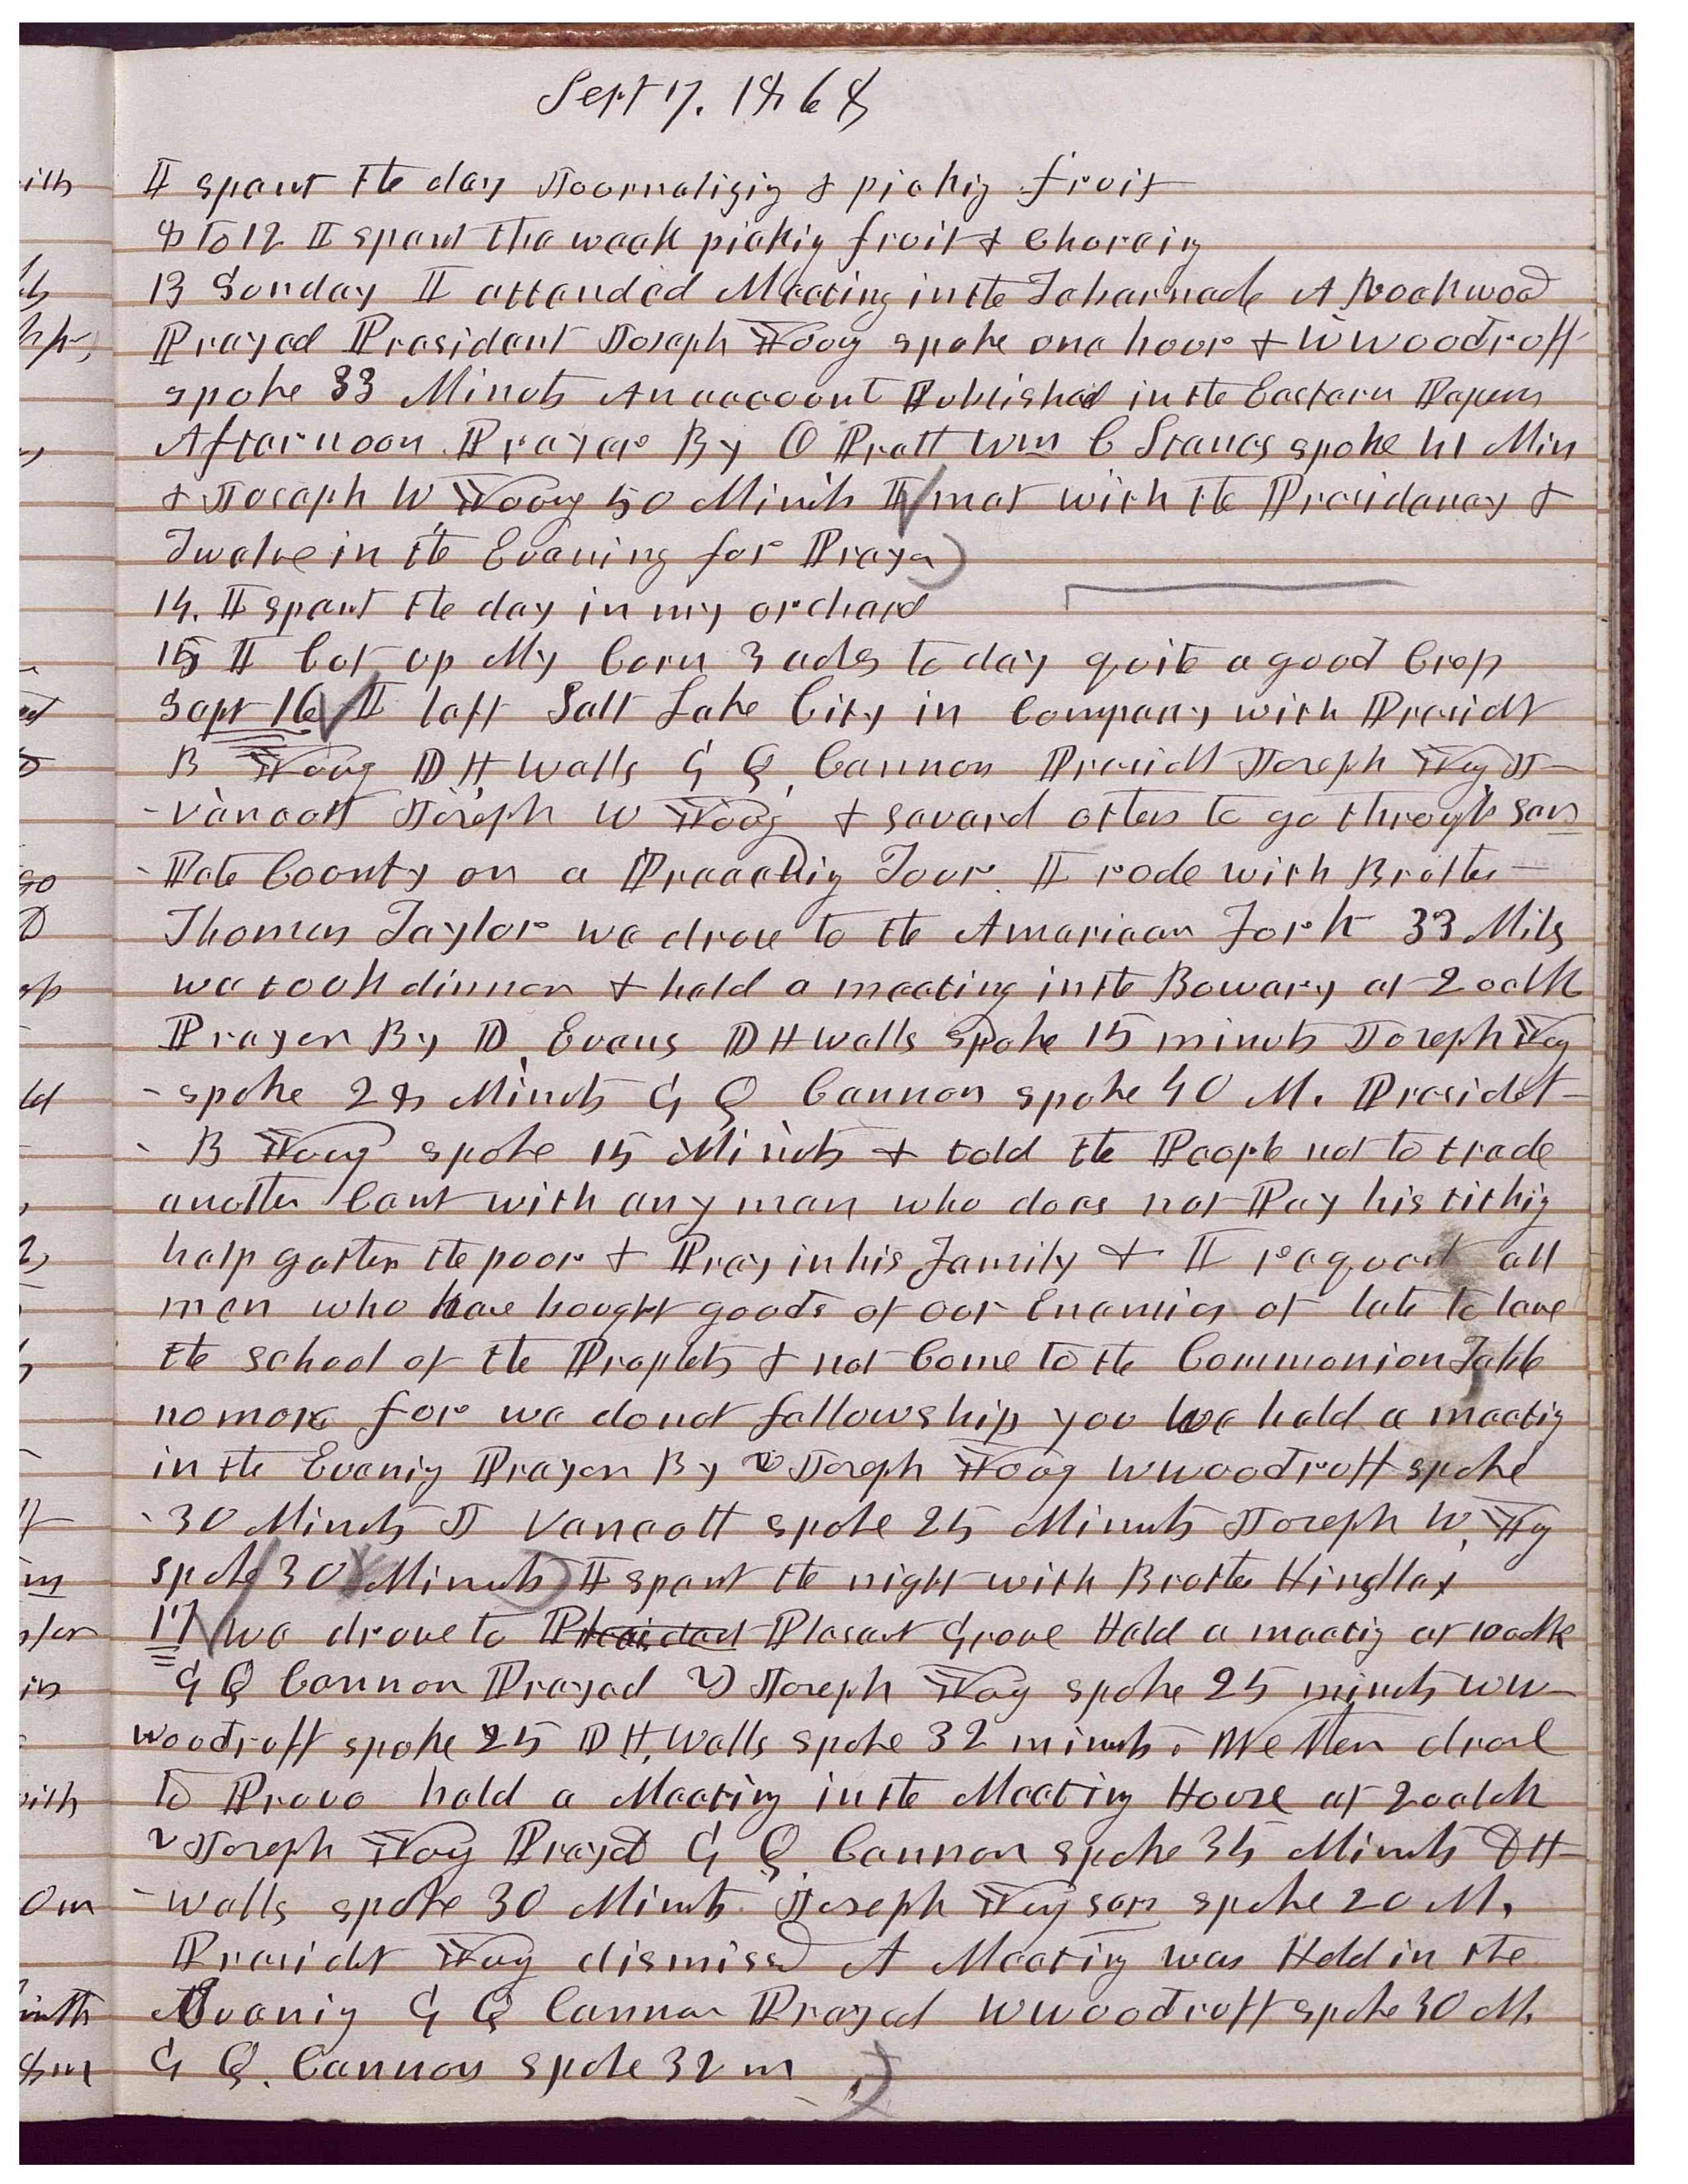 Sept 7. 1868
I spent the day Journalizig & pickig fruit
8 to 12 I spent the week pickig fruit & Choreing
13 Sunday I attended Meeting in the Tabernacle A Rockwood
Prayed President Joseph Young spoke one hour & W Woodruff
spoke 33 Minuts An account Published in the Eastern Papers
Afternoon Prayer By O Pratt Wm C Stanes spoke 41 Min
& Joseph W Young 50 Minuts I met with the Presidency &
Twelve in the Evening for Prayer
14. I spent the day in my orchard
15 I Cut up My Corn 3 acres to day quite a good Crop
Sept 16 I left Salt Lake City in Company with Presidt
B Young D H Wells G Q Cannon Presidt Joseph Yg J
Vancott Joseph W Young & several others to go through San
Pete County on a Preaching Tour. I rode with Brother
Thomas Taylor we drove to the American Fork 33 Miles
we took dinner & held a meeting in the Bowery at 2 oclk
Prayer By D. Evans D H Wells Spoke 15 minuts Joseph Yog
spoke 28 Minuts G Q Cannon spoke 40 M. Presidet
B Young spoke 15 Minuts & told the People not to trade
another Cent with any man who does not Pay his tithig
help gather the poor & Pray in his Family & I request all
men who have bought goods of our Enemies of late to leave
the school of the Prophets & not Come to the Communion Table
no more for we do not fellowship you We held a meetig
in the Evenig Prayer By Joseph Young W Woodruff spoke
30 Minuts J Vancott spoke 25 Minuts Joseph W. Yg
spoke 30 Minuts I spent the night with Brother Hingley
17 We drove to Presidet Plesant Grove Held a meetig at 10 oclk
G Q Cannon Prayed Joseph Yog spoke 25 minuts W W
Woodruff spoke 25 D H, Wells spoke 32 minuts. We then drove
to Provo held a Meeting in the Meeting House at 2 oclok
Joseph Yog Prayed G Q. Cannon spoke 35 Minuts D H
Wells spoke 30 Minuts Joseph Yog sen spoke 20 M,
Presidet Yog dismissed A Meeting was Held in the
Evenig G Q Cannon Prayed W Woodruff spoke 30 M.
G Q. Cannon spoke 32 m